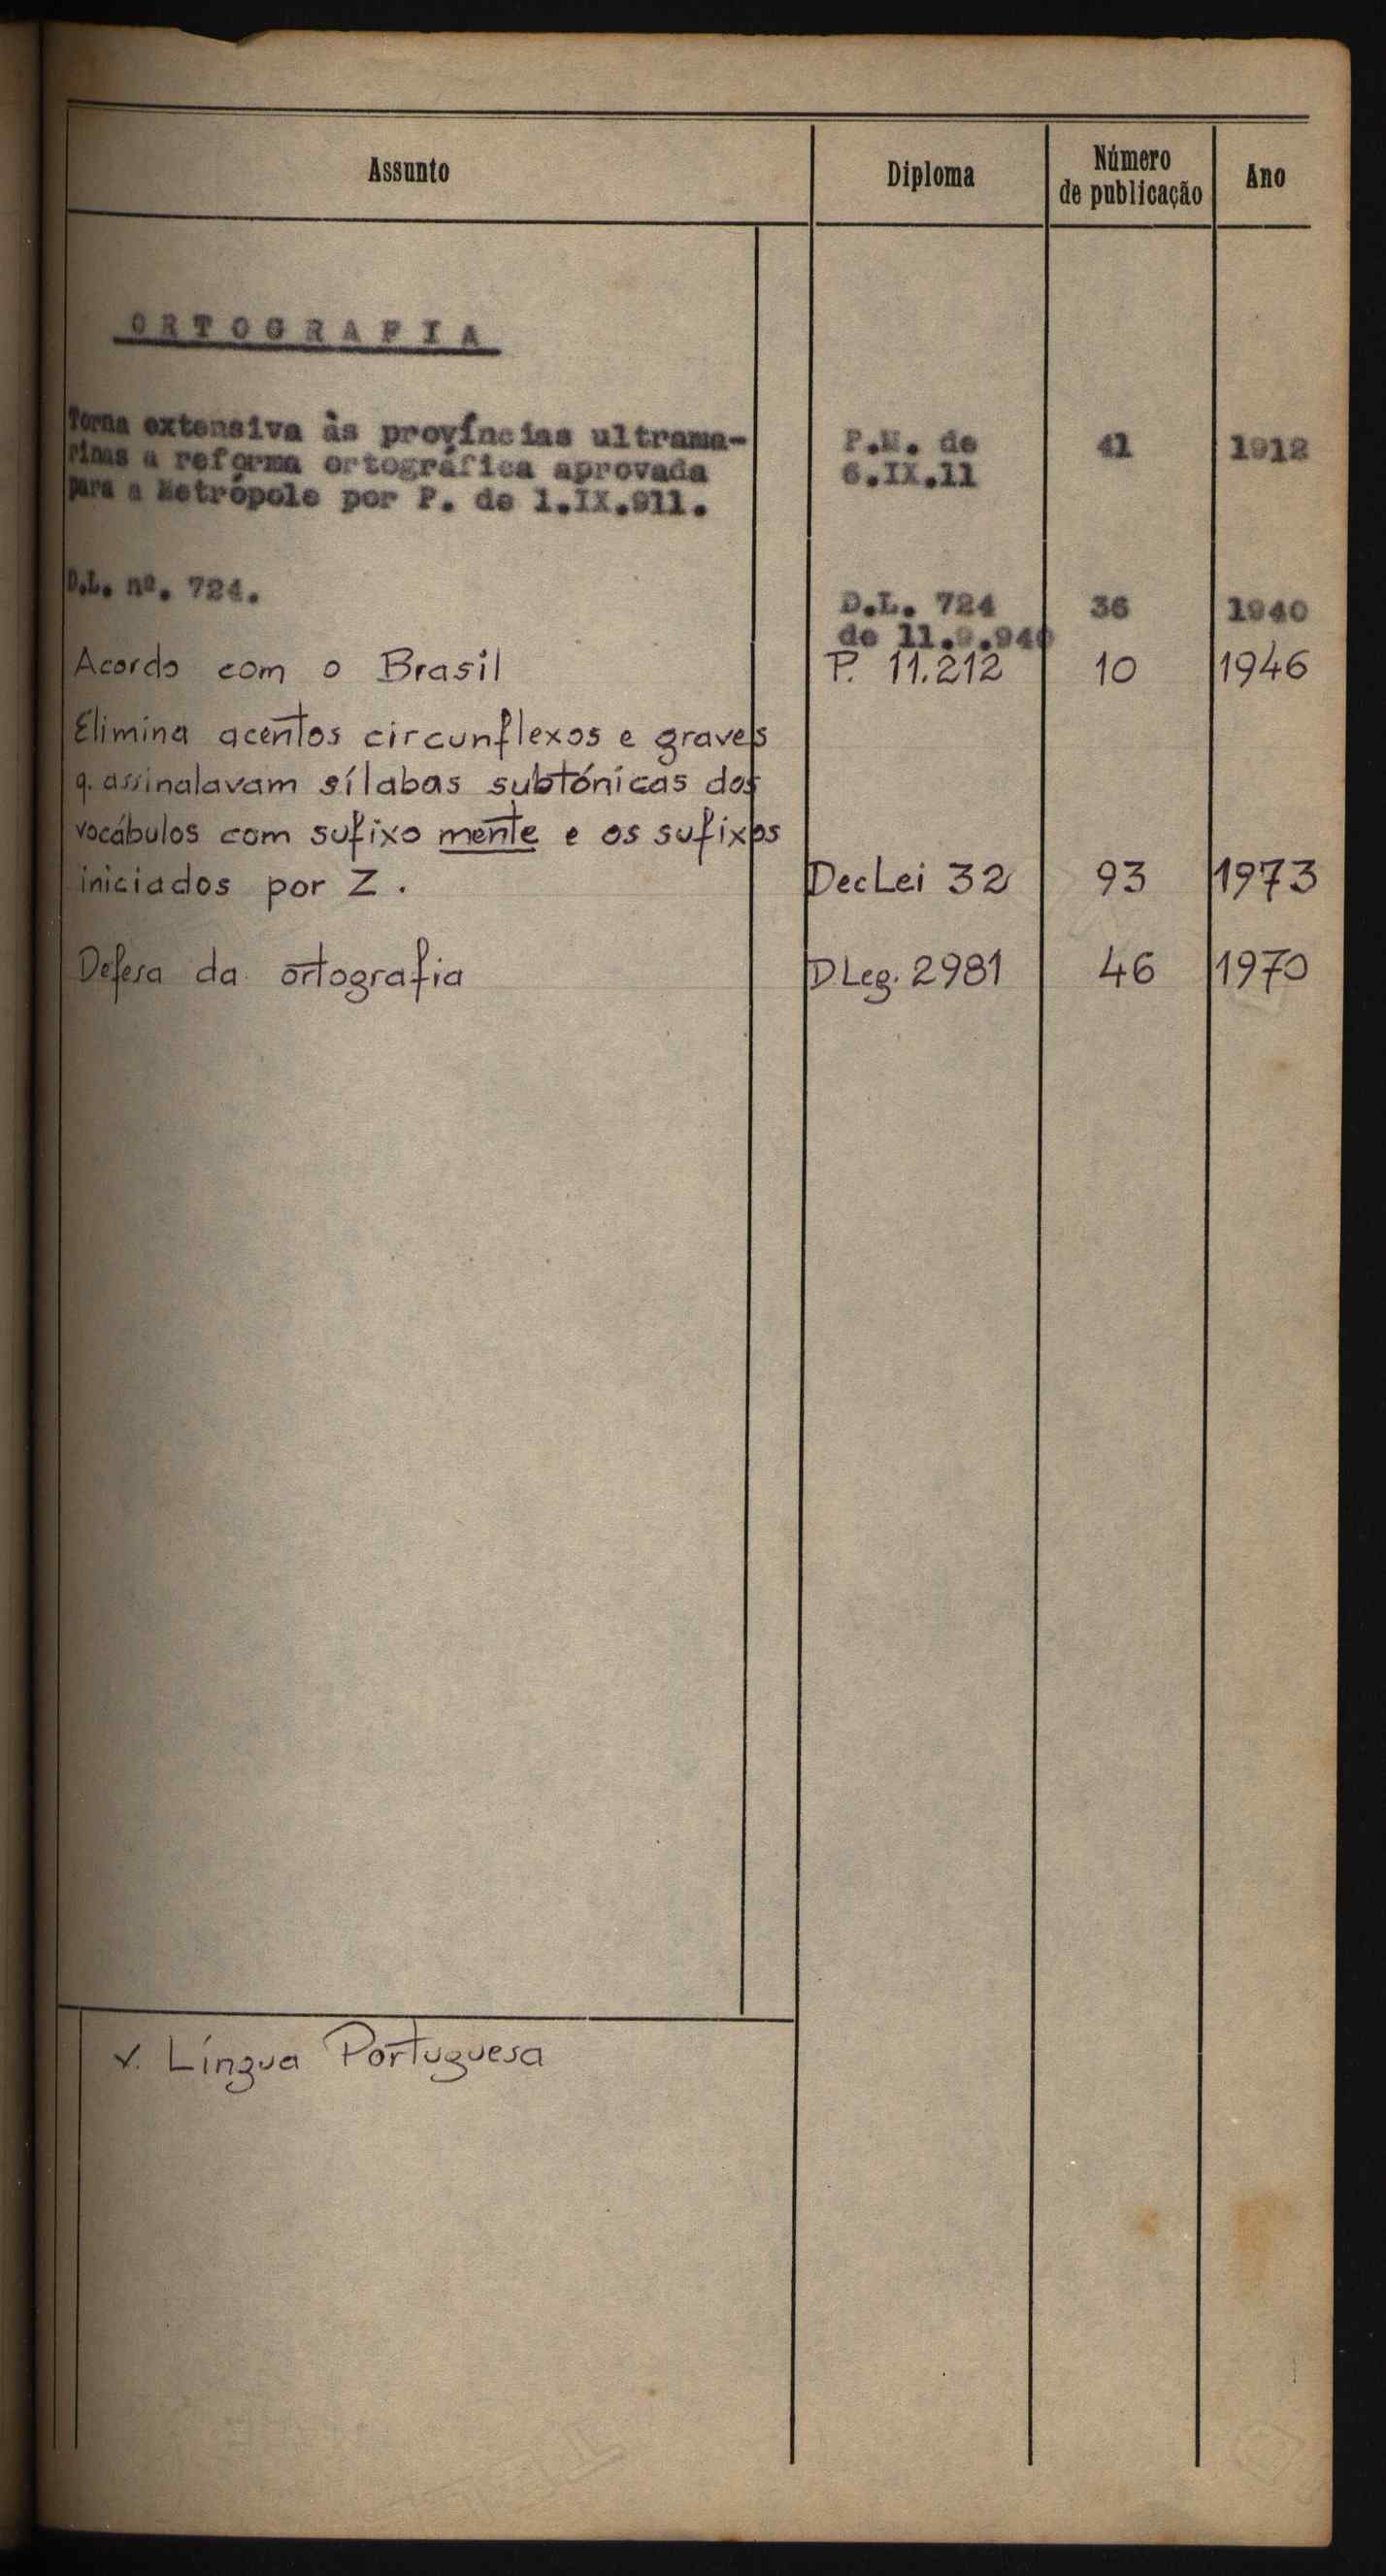 Assunto Diploma Número de publicação Ano
ORTOGRAFIA
Torna extensiva às províncias ultrama- P.M. de 41 1912
rinas a reforma ortográfica aprovada 6.IX.11
para a Metrópole por P. de 1.IX.911.
D.L. nº. 724. D.L. 724 36 1940
de 11.9.940
Acordo com o Brasil P. 11.212 10 1946
Elimina acentos circunflexos e graves
q. assinalavam sílabas subtónicas dos
vocábulos com sufixo mente e os sufixos
iniciados por Z. DecLei 32 93 1973
Defesa da ortografia DLeg. 2981 46 1970
v. Língua Portuguesa